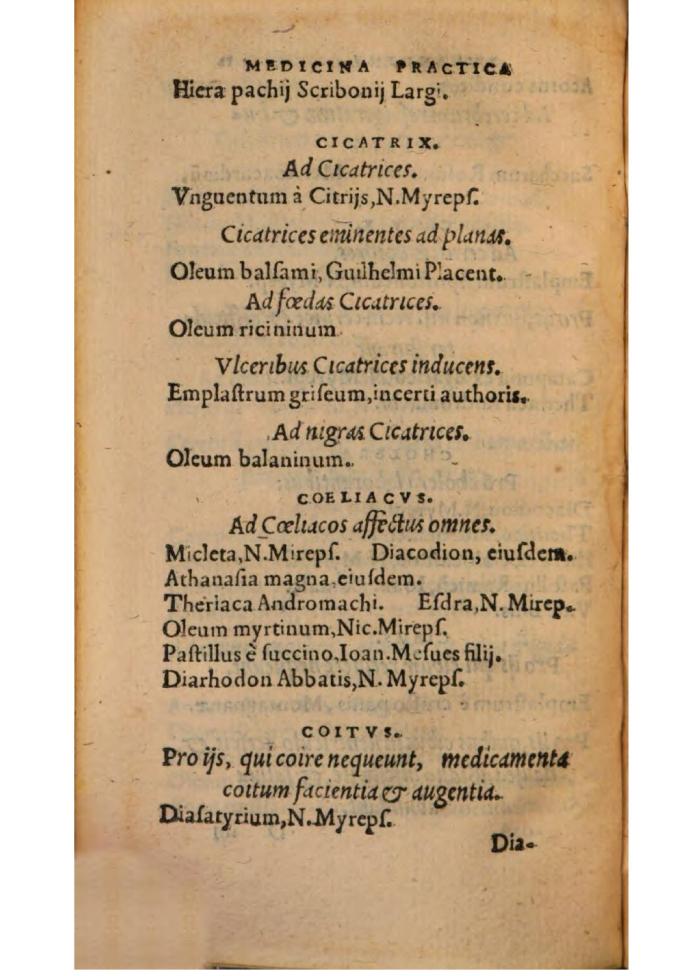 MEDICINA PRACTICA
Hiera pachij Scribonij Largi.
CICATRIX.
Ad Cicatrices.
Vnguentum à Citrijs, N. Myrepſ.
Cicatrices eminentes ad planas.
Oleum balſami, Guilhelmi Placent.
Ad fœdas Cicatrices.
Oleum ricininum.
Vlceribus Cicatrices inducens.
Emplaſtrum griſeum, incerti authoris.
Ad nigras Cicatrices.
Oleum balaninum.
COELIACVS.
Ad Cœliacos affectus omnes.
Micleta, N. Mirepſ. Diacodion, eiuſdem.
Athanaſia magna, eiuſdem.
Theriaca Andromachi. Eſdra, N. Mirep.
Oleum myrtinum, Nic. Mirepſ.
Paſtillus è ſuccino, Ioan. Meſues filij.
Diarhodon Abbatis, N. Myrepſ.
COITVS.
Pro ijs, qui coire nequeunt, medicamenta
coitum facientia & augentia.
Diaſatyrium, N. Myrepſ.
Dia-